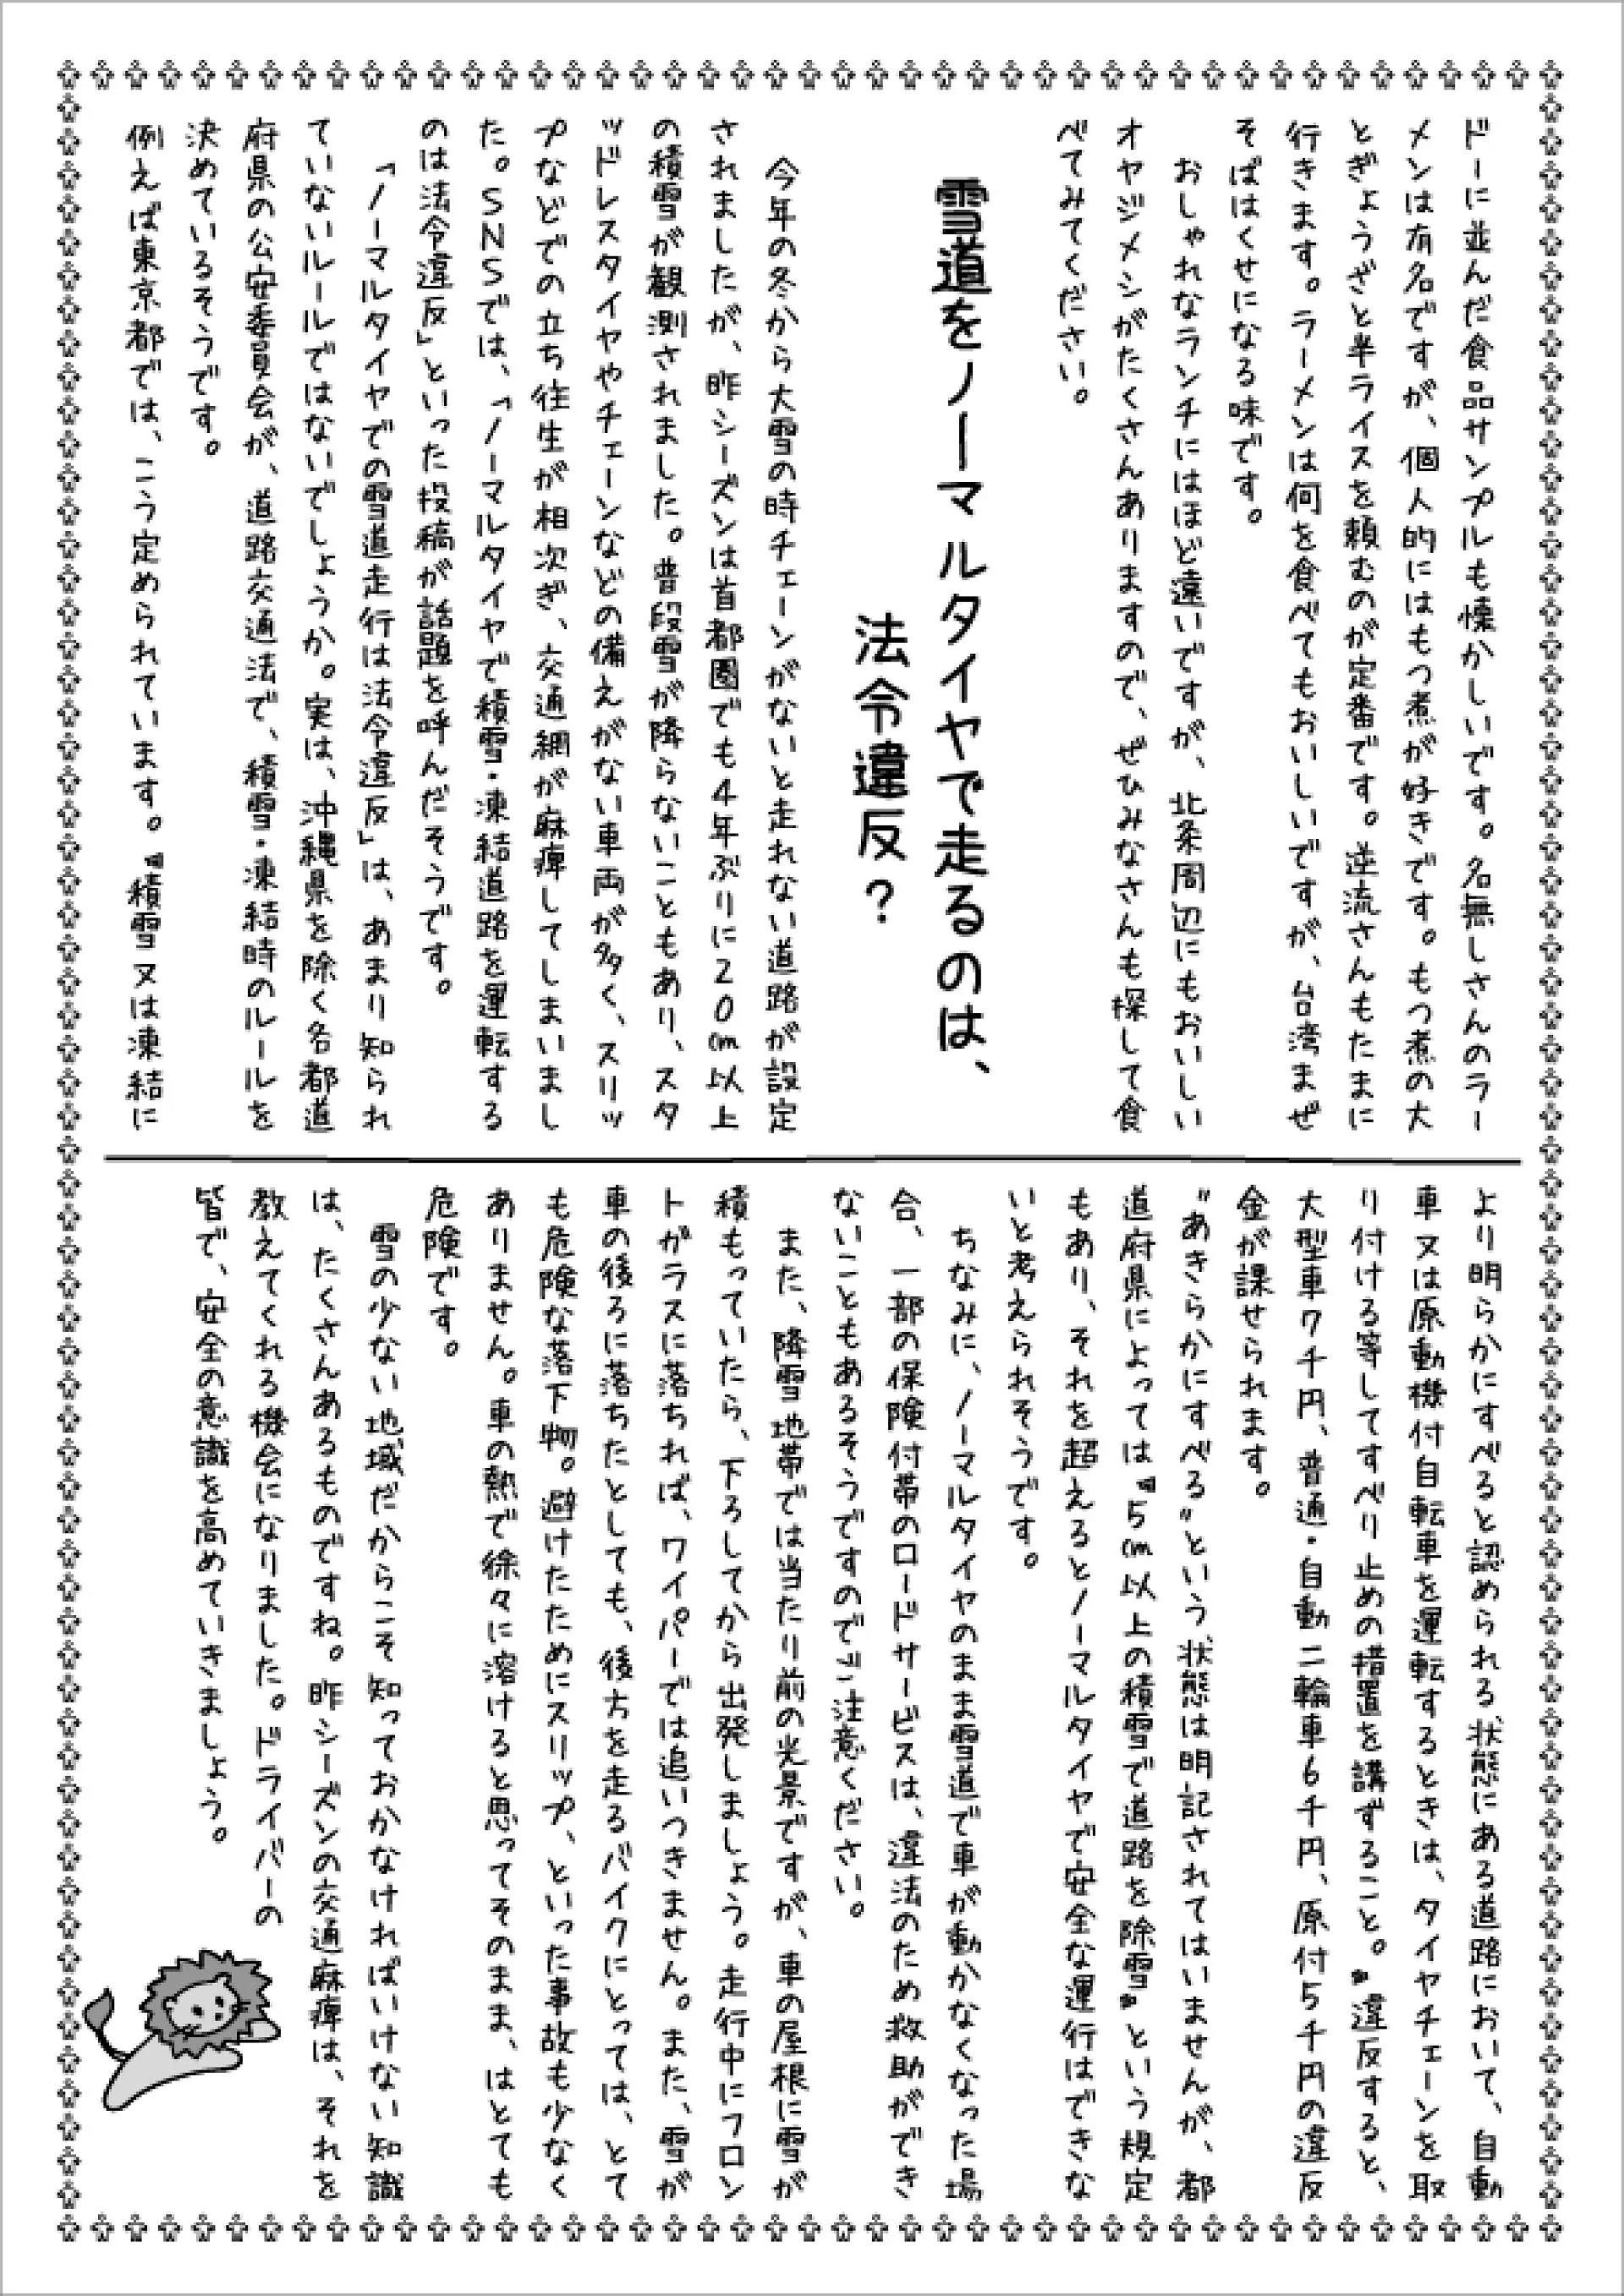 ドーに並んだ食品サンプルも懐かしいです。名無しさんのラー
メンは有名ですが、個人的にはもつ煮が好きです。もつ煮の大
とぎょうざと半ライスを頼むのが定番です。逆流さんもたまに
行きます。ラーメンは何を食べてもおいしいですが、台湾まぜ
そばはくせになる味です。
おしゃれなランチにはほど遠いですが、北条周辺にもおいしい
オヤジメシがたくさんありますので、ぜひみなさんも探して食
べてみてください。
雪道をノーマルタイヤで走るのは、
法令違反？
今年の冬から大雪の時チェーンがないと走れない道路が設定
されましたが、昨シーズンは首都圏でも4年ぶりに20㎝以上
の積雪が観測されました。普段雪が降らないこともあり、スタ
ッドレスタイヤやチェーンなどの備えがない車両が多く、スリッ
プなどでの立ち往生が相次ぎ、交通網が麻痺してしまいまし
た。SNSでは、「ノーマルタイヤで積雪・凍結道路を運転する
のは法令違反」といった投稿が話題を呼んだそうです。
「ノーマルタイヤでの雪道走行は法令違反」は、あまり知られ
ていないルールではないでしょうか。実は、沖縄県を除く各都道
府県の公安委員会が、道路交通法で、積雪・凍結時のルールを
決めているそうです。
例えば東京都では、こう定められています。『積雪又は凍結に
より明らかにすべると認められる状態にある道路において、自動
車又は原動機付自転車を運転するときは、タイヤチェーンを取
り付ける等してすべり止めの措置を講ずること。』違反すると、
大型車7千円、普通・自動二輪車6千円、原付5千円の違反
金が課せられます。
〝あきらかにすべる〟という状態は明記されてはいませんが、都
道府県によっては『5㎝以上の積雪で道路を除雪』という規定
もあり、それを超えるとノーマルタイヤで安全な運行はできな
いと考えられそうです。
ちなみに、ノーマルタイヤのまま雪道で車が動かなくなった場
合、一部の保険付帯のロードサービスは、違法のため救助ができ
ないこともあるそうですのでご注意ください。
また、降雪地帯では当たり前の光景ですが、車の屋根に雪が
積もっていたら、下ろしてから出発しましょう。走行中にフロン
トガラスに落ちれば、ワイパーでは追いつきません。また、雪が
車の後ろに落ちたとしても、後方を走るバイクにとっては、とて
も危険な落下物。避けたためにスリップ、といった事故も少なく
ありません。車の熱で徐々に溶けると思ってそのまま、はとても
危険です。
雪の少ない地域だからこそ知っておかなければいけない知識
は、たくさんあるものですね。昨シーズンの交通麻痺は、それを
教えてくれる機会になりました。ドライバーの
皆で、安全の意識を高めていきましょう。